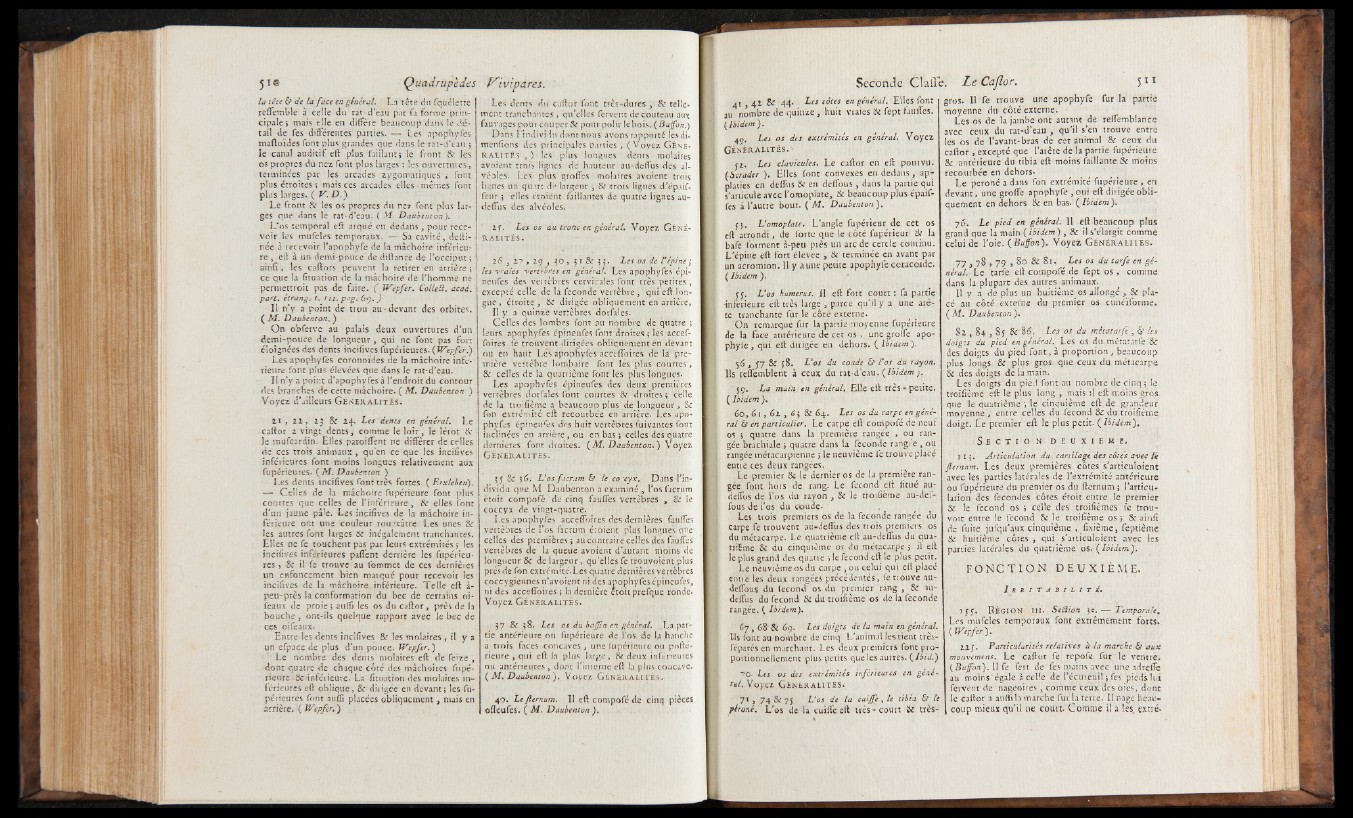 510 Quadrupèdes Vivipares.
la tête & de la face en général. La tête du squélette
ressemble à celle du rat-d'eau par sa forme prin-
cipale ; mais elle en diffère beaucoup dans le dé-
tail de ses différentes parties. — Les apophyses
mastoïdes sont plus grandes que dans le rat-d'eau ;
le canal auditif est plus saillant ; le front & les
os propres du nez sont plus larges : les ouvertures,
terminées par les arcades zygomatiques, sont
plus étroites ; mais ces arcades elles-mêmes sont
plus larges. ( V. D. )
Le front & les os propres du nez sont plus lar-
ges que dans le rat-d'eau. ( M. Daubenton ).
L'os temporal est arqué en dedans, pour rece-
voir les muscles temporaux. — Sa cavité, desti-
née à recevoir l'apophyse de la mâchoire inférieu-
re, est à un demi-pouce de distance de l'occiput ;
ainsi, les castors peuvent la retirer en arrière ;
ce que la situation de la mâchoire de l'homme ne
permettroit pas de faire. ( Wepfer. Collect. acad.
part. étrang. t. 111. pag. 69. )
Il n'y a point de trou au-devant des orbites.
( M. Daubenton. )
On observe au palais deux ouvertures d'un
demi-pouce de longueur, qui ne sont pas fort
éloignées des dents incisives supérieures. (Wepfer.)
Les apophyses coronoïdes de la mâchoire infé-
rieure sont plus élevées que dans le rat-d'eau.
Il n'y a point d'apophyses à l'endroit du contour
des branches de cette mâchoire. ( M. Daubenton )
Voyez d'ailleurs GENERALITÉS.
21, 22, 23 & 24. Les dents en général. Le
castor a vingt dents, comme le loir, le lérot &
le muscardin. Elles paroissent ne différer de celles
de ces trois animaux, qu'en ce que les incisives
inférieures sont moins longues relativement aux
supérieures. ( M. Daubenton )
Les dents incisives sont très fortes. ( Erxleben).
— Celles de la mâchoire supérieure sont plus
courtes que celles de l'inférieure, & elles sont
d'un jaune pâle. Les incisives de la mâchoire in-
férieure ont une couleur roussâtre. Les unes &
les autres sont larges & inégalement tranchantes.
Elles ne se touchent pas par leurs extrémités ; les
incisives inférieures passent derrière les supérieu-
res, & il se trouve au sommet de ces dernières
un enfoncement bien marqué pour recevoir les
incisives de la mâchoire inférieure. Telle est à-
peu-près la conformation du bec de certains oi-
seaux de proie ; aussi les os du castor, près de la
bouche, ont-ils quelque rapport avec le bec de
ces oiseaux.
Entre les dents incisives & les molaires, il y a
un espace de plus d'un pouce. Wepfer. )
Le nombre des dents molaires est de seize,
dont quatre de chaque côté des mâchoires supé-
rieure & inférieure. La situation des molaires in-
férieures est oblique, & dirigée en devant ; les su-
périeures sont aussi placées obliquement, mais en
arrière. ( Wepfer.)
Les dents du castor sont très-dures, & telle-
ment tranchantes, qu'elles servent de couteau aux
sauvages pour couper & pour polir le bois. ( Buffon.)
Dans l'individu dont nous avons rapporté les di-
mensions des principales parties, ( Voyez GÉNÉ-
RALITÉS, ) les plus longues dents molaires
avoient trois lignes de hauteur au-dessus des al-
véoles. Les plus grosses molaires avoient trois
lignes un quart de largeur, & trois lignes d'épais-
seur ; elles étoient saillantes de quatre lignes au-
dessus des alvéoles.
25. Les os du tronc en général. Voyez GÉNÉ-
RALITÉS.
26, 27, 29, 30, 31 & 33. Les os de l'épine ;
les vraies vertèbres en général. Les apophyses épi-
neuses des vertèbres cervicales sont très petites,
excepté celle de la seconde vertèbre, qui est lon-
gue, étroite, & dirigée obliquement en arrière.
Il y a quinze vertèbres dorsales.
Celles des lombes sont au nombre de quatre ;
leurs apophyses épineuses sont droites ; les acces-
soires se trouvent dirigées obliquement en devant
ou en haut Les apophyses accessoires de la pre-
mière vertèbre lombaire sont les plus courtes,
& celles de la quatrième sont les plus longues.
Les apophyses épineuses des deux premières
vertèbres dorsales sont courtes & droites ; celle
de la troisième a beaucoup plus de longueur, &
son extrémité est recourbée en arrière. Les apo-
physes épineuses des huit vertèbres suivantes sont
inclinées en arrière, ou en bas ; celles des quatre
dernières sont droites. (M. Daubenton.) Voyez
GÉNÉRALITÉS.
35 & 36. L'os sacrum & le coccyx. Dans l'in-
dividu que M. Daubenton a examiné, l'os sacrum
étoit composé de cinq fausses vertèbres, & le
coccyx de vingt-quatre.
Les apophyses accessoires des dernières fausses
vertèbres de l'os sacrum étoient plus longues que
celles des premières ; au contraire celles des fausses
vertèbres de la queue avoient d'autant moins de
longueur & de largeur, qu'elles se trouvoient plus
près de son extrémité. Les quatre dernières vertèbres
coccygiennes n'avoient ni des apophyses épineuses,
ni des accessoires ; la dernière étoit presque ronde.
Voyez GÉNÉRALITÉS.
37 & 38. Les os du bassin en général. La par-
tie antérieure ou supérieure de l'os de la hanche
a trois faces concaves, une supérieure ou posté-
rieure, qui est la plus large, & deux inférieures
ou antérieures, dont l'interne est la plus concave.
( M. Daubenton ). Voyez GÉNÉRALITÉS.
40. Le sternum. Il est composé de cinq pièces
osseuses. ( M. Daubenton ).
Seconde Classe. Le Castor. 511
41, 42 & 44. Les côtes en général. Elles sont
au nombre de quinze, huit vraies & sept fausses.
( Ibidem ).
49. Les os des extrémités en général. Voyez
GÉNÉRALITÉS.
52. Les clavicules. Le castor en est pourvu.
(Schrader ). Elles sont convexes en dedans, ap-
platies en dessus & en dessous, dans la partie qui
s'articule avec l'omoplate, & beaucoup plus épais-
ses à l'autre bout. ( M. Daubenton ).
53. L'omoplate. L'angle supérieur de cet os
est arrondi, de sorte que le côté supérieur & la
base forment à-peu-près un arc de cercle continu.
L'épine est fort élevée, & terminée en avant par
un acromion. Il y a une petite apophyse coracoïde.
( Ibidem ).
55. L'os humerus. Il est fort court : sa partie
inférieure est très large, parce qu'il y a une arê-
te tranchante sur le côté externe.
On remarque sur la partie moyenne supérieure
de la face antérieure de cet os, une grosse apo-
physe, qui est dirigée en dehors. ( Ibidem ).
56, 57 & 58. L'os du coude & l'os du rayon.
Ils ressemblent à ceux du rat-d'eau. ( Ibidem ).
59. La main en général, Elle est très-petite.
( Ibidem ).
60, 61, 62, 63 & 64. Les os du carpe en géné-
ral & en particulier. Le carpe est composé de neuf
os ; quatre dans la première rangée, ou ran-
gée brachiale ; quatre dans la seconde rangée, ou
rangée métacarpienne ; le neuvième se trouve placé
entre ces deux rangées.
Le premier & le dernier os de la première ran-
gée sont hors de rang. Le second est situé au-
dessous de l'os du rayon, & le troisième au-des-
sous de l'os du coude.
Les trois premiers os de la seconde rangée du
carpe se trouvent au-dessus des trois premiers os
du métacarpe. Le quatrième est au-dessus du qua-
trième & du cinquième os du métacarpe ; il est
le plus grand des quatre ; le second est le plus petit.
Le neuvième os du carpe, ou celui qui est placé
entre les deux rangées précédentes, se trouve au-
dessous du second os du premier rang, & au-
dessus du second & du troisième os de la seconde
rangée. ( Ibidem).
67, 68 & 69. Les doigts de la main en général.
Ils sont au nombre de cinq. L'animal les tient très-
séparés en marchant. Les deux premiers sont pro-
portionnellement plus petits que les autres. ( Ibid.)
70. Les os des extrémités inférieures en géné-
ral. Voyez GÉNÉRALITÉS.
71, 74 & 75 L'os de la cuisse, le tibia & le
péroné. L'os de la cuisse est très-court & très-
gros. Il se trouve une apophyse sur la partie
moyenne du côté externe.
Les os de la jambe ont autant de ressemblance
avec ceux du rat-d'eau, qu'il s'en trouve entre
les os de l'avant-bras de cet animal & ceux du
castor, excepté que l'arête de la partie supérieure
& antérieure du tibia est moins saillante & moins
recourbée en dehors.
Le peroné a dans son extrémité supérieure, en
devant, une grosse apophyse, qui est dirigée obli-
quement en dehors & en bas. ( Ibidem ).
76. Le pied en général. Il est beaucoup plus
grand que la main ( ibidem ), & il s'élargit comme
celui de l'oie. ( Buffon). Voyez GÉNÉRALITÉS.
77, 78, 79, 80 & 81. Les os du tarse en gé-
néral. Le tarse est composé de sept os, comme
dans la plupart des autres animaux.
Il y a de plus un huitième os allongé, & pla-
cé au côté externe du premier os cunéiforme.
( M. Daubenton ).
82, 84, 85 & 86. Les os du métatarse, & les
doigts du pied en général. Les os du métatarse &
des doigts du pied sont, à proportion, beaucoup
plus longs & plus gros que ceux du métacarpe
& des doigts de la main.
Les doigts du pied sont au nombre de cinq ; le
troisième est le plus long, mais il est moins gros
que le quatrième ; le cinquième est de grandeur
moyenne, entre celles du second & du troisième
doigt. Le premier est le plus petit. ( Ibidem ).
SECTION DEUXIEME.
113. Articulation du cartilage des côtes avec le
sternum. Les deux premières côtes s'articuloient
avec les parties latérales de l'extrémité antérieure
ou supérieure du premier os du sternum ; l'articu-
lation des secondes côtes étoit entre le premier
& le second os ; celle des troisièmes se trou-
voit entre le second & le troisième os ; & ainsi
de suite jusqu'aux cinquième, sixième, septième
& huitième côtes, qui s'articuloient avec les
parties latérales du quatrième os. ( Ibidem ).
FONCTION DEUXIÈME.
IRRITABILITÉ.
155. RÉGION III. Section 3e. — Temporale.
Les muscles temporaux sont extrêmement forts.
( Wepfer ).
225. Particularités relatives à la marche & aux
mouvemens. Le castor se repose sur le ventre.
( Buffon). Il se sert de ses mains avec une adresse
au moins égale à celle de l'écureuil ; ses pieds lui
servent de nageoires, comme ceux des oies, dont
le castor a aussi la marche sur la terre. Il nage beau-
coup mieux qu'il ne court. Comme il a les extré-